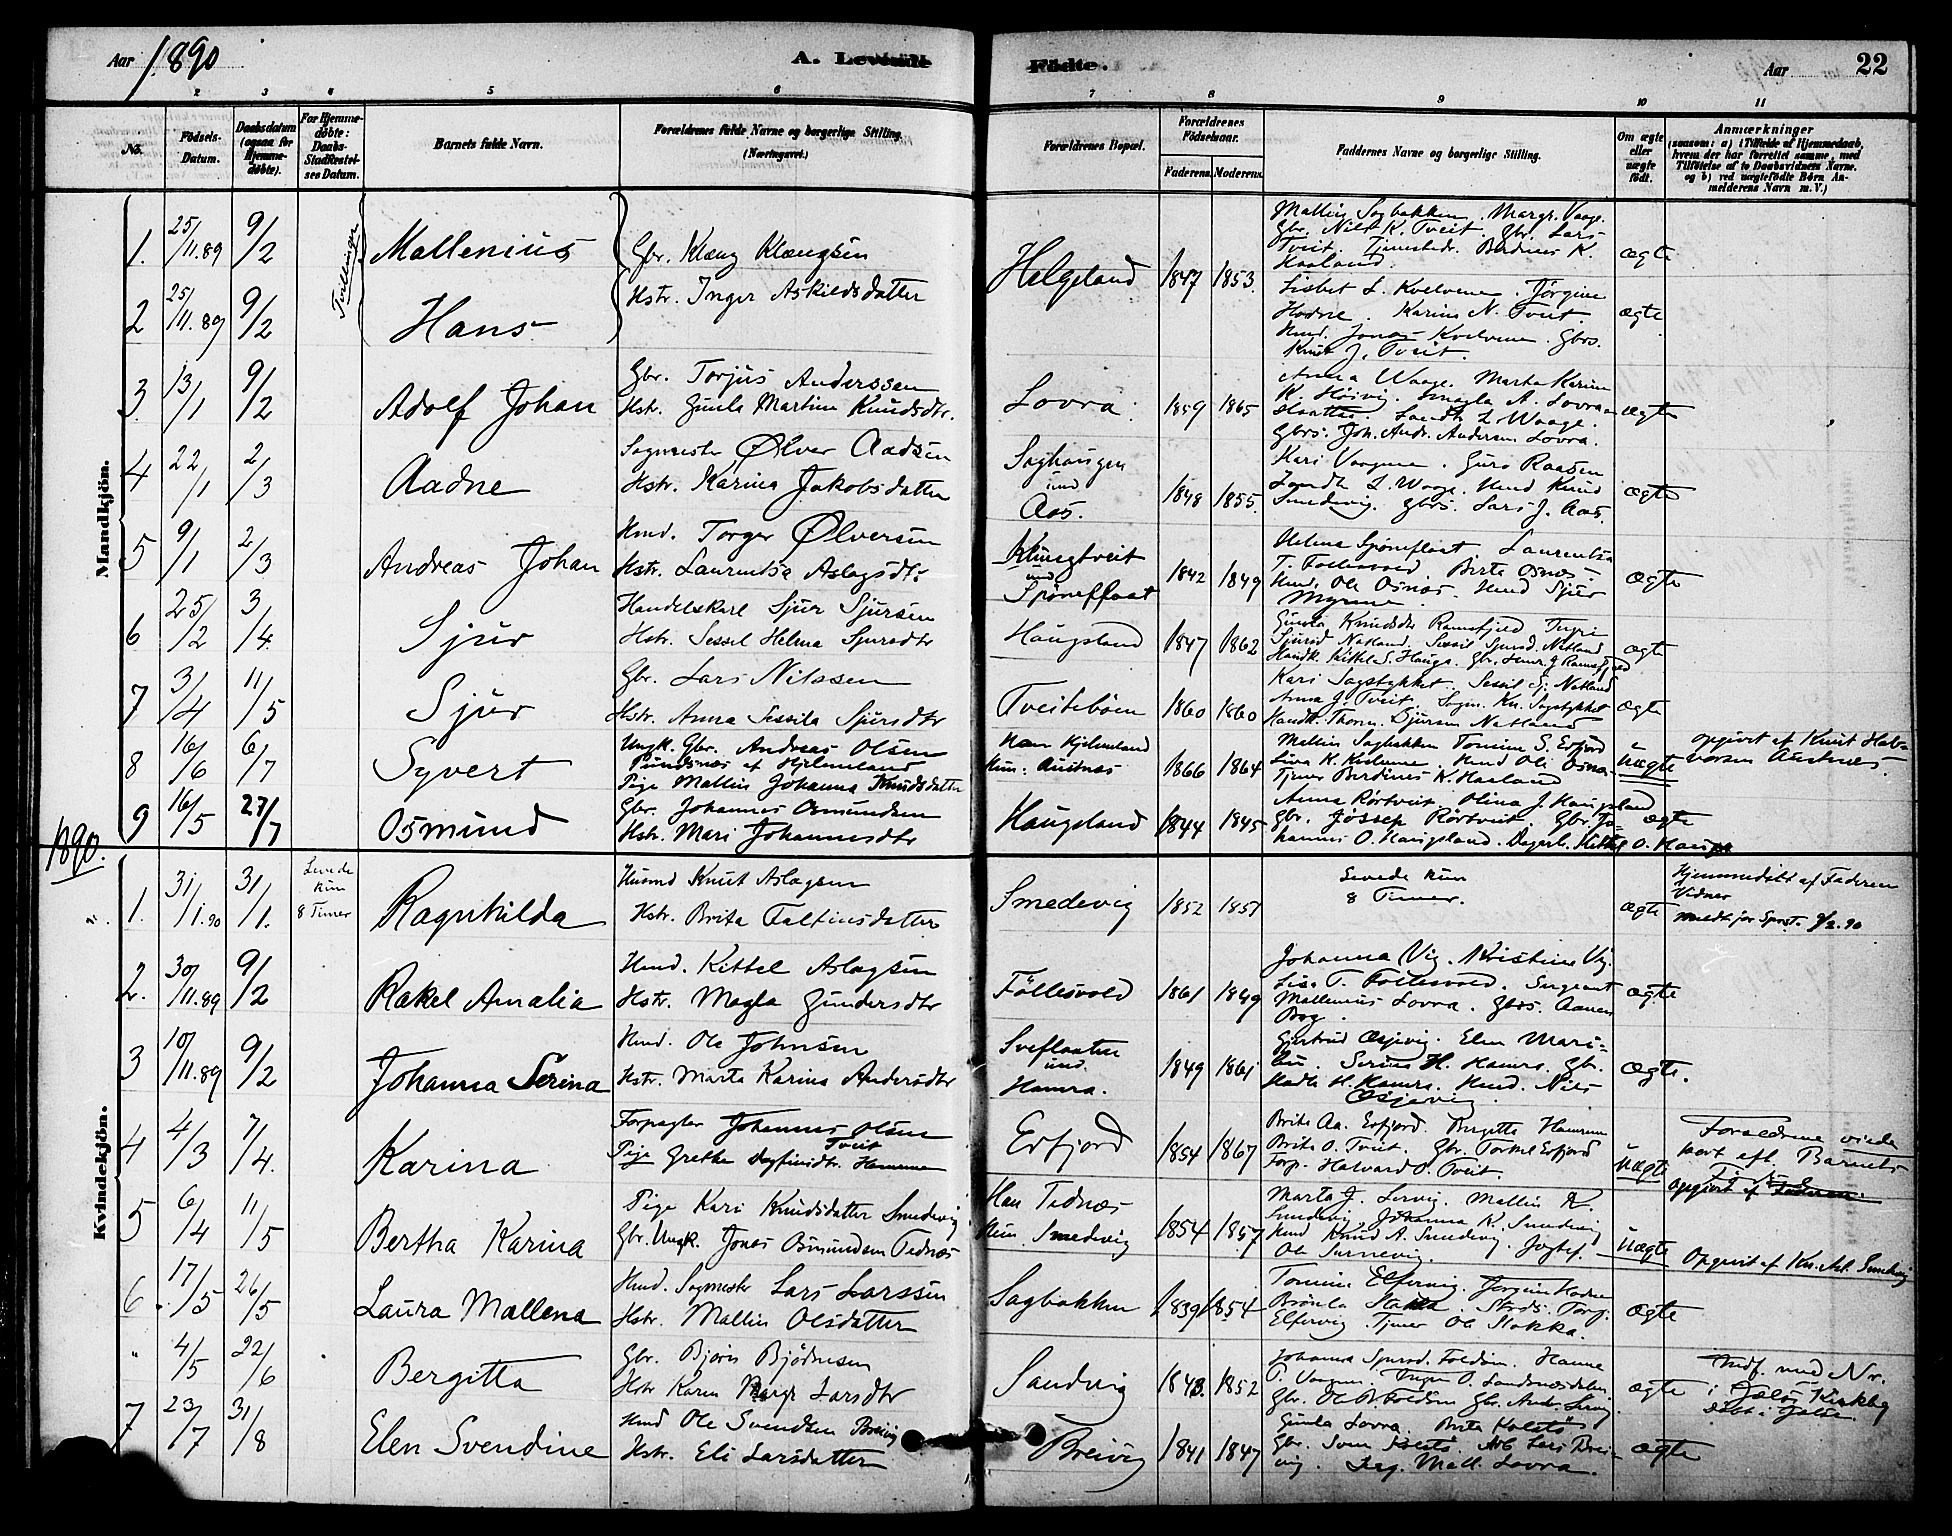 Aar 1890 A. Levende Fødte. Aar 22
2 3 4 5 6 7 8 9 10 11
No. Fødsels-Datum. Daabsdatum (ogsaa for Hjemme-døbte). For Hjemme-døbte: Daabs-Stadfæstel-ses Datum. Barnets fulde Navn. Forældrenes fulde Navne og borgerlige Stilling. (Næringsvei.) Forældrenes Bopæl. Forældrenes Fødselsaar. Faderens. Moderens. Faddernes Navne og borgerlige Stilling. Om ægte eller uægte født. Anmærkninger (saasom: a) i Tilfælde af Hjemmedaab, hvem der har forrettet samme, med Tilføielse af to Daabsvidners Navne. og b) ved uægtefødte Børn An-melderens Navn m. V.)
Mandkjön.
1. 25/11.89 9/2 Tvillinger Mallenius Gbr. Klæng Klængsen
Hstr. Inger Askildsdatter Helgeland 1847 1853. Mallin Sagbakken. Margr. Vaage.
Gbr. Nils K. Tveit. Gbr. Lars
Tveit. Tjenestedr. Berdines K.
Haaland. ægte
2 25/11.89 9/2 Hans Lisbet L. Kvelvene. Jörgine
Hodne. Karine N. Tveit.
Hmd. Jonas Kvelvene. Gbrs.
Knut J. Tveit. ægte
3. 13/1 9/2 Adolf Johan Gbr. Torjus Anderssen
Hstr. Gunla Martine Knudsdtr. Lovra. 1859 1865 Anna Waage. Marta Karine
K. Høivig. Magla A. Lovra
L. Waage.
Gbrs. Joh. Andr. Andersen Lovra. ægte
4 22/1 2/3 Aadne Sagmester Ølver Aadsen
Hstr. Karina Jakobsdatter Saghaugen
und
Aas. 1848 1855. Kari Vaagene. Guro Raasen
L. Waage. Hmd Knud
Smedevig. Gbrs. Lars J. Aas. ægte
5 9/1 2/3 Andreas Johan Hmd. Torger Ølversen
Hstr. Laurentse Aslagsdtr. Klungtveit
und
Spöneflaat 1842 1849 Helena Spöneflaat. Laurentse
T. Follesvold Berta Osnes.
Hmd. Ole Osnes. Hmd Sjur ægte
6 25/2 3/4. Sjur Handelskarl Sjur Sjursen
Hstr. Sessel Helena Sjursdtr Haugsland 1847 1862 Gunla Knudsdtr Ramsfjeld Ingri
Sjursd Natland. Sessil Sjursd. Natland
Handk. Kittel S. Hauge. Gbr. J Ramsfjeld ægte
7 3/4 11/5 Sjur Gbr. Lars Nilssen
Hstr. Anna Sessila Sjursdtr Tveiteböen 1860 1860 Kari Sagstykket. Sessil Sj. Natland
Anna J. Tveit. Sagm. Kn. Sagstykket
Handk. Thorm. Sjursen Natland ægte
8 16/6 6/7 Syvert Ungk. Gbr. Andreas Olsen
Pundsnes af Hjelmeland
Pige Mallin Johanna Knudsdatter Han Hjelmeland
Hun: Austnes 1866 1864 Mallin Sagbakken Tomine S. Erfjord
Lina K. Kvelvene. Hmd Oli Osnes.
Tjener Berdines K. Haaland uægte opgivet af Knut Hal-
vorsen Austnes.
9 16/5 27/7 Osmund Gbr. Johannes Osmundsen
Hstr. Mari Johannesdtr Haugsland 1844 1845 Anna Rörtveit. Olina J. Haugsland
Gbr. Jössep Rörtveit. Gbr. Jo-
hannes O. Haugsland. Dagarb. Kittel O. Hauge ægte
1890.
Kvindekjön.
1. 31/1.90 31/1. Levede
kun
8 Timer Ragnhilda Husmd Knut Aslagsen
Hstr. Brita Faltinsdatter Smedevig 1852 1851 Levede kun
8 Timer. ægte Hjemmedöbt af Faderen
Vidner
meldt for Sprst. 9/2.90
2. 30/11.89 9/2 Rakel Amalia Hmd. Kittel Aslagsen
Hstr. Magla Gundersdtr Föllesvold 1861 1869 Johanna Vig. Kristine Vig.
Lisa T. Follesvold. Sergeant
Mallenius Lovra. Gbrs. Aanen
Bog. ægte
3 10/11.89 9/2 Johanna Serina Hmd. Ole Johnsen
Hstr. Marta Karina Andersdtr Sveflaaten
und.
Hamra. 1849 1861 Gjertrud Osjevig. Elen Mari-
bu. Serine H. Hamra. Gbr.
Hadle H. Hamra. Hmd. Nils
Osjevig. ægte.
4 4/3 7/4. Karina Forpagter Johannes Olsen
Tveit
Pige Grethe Dagfinsdtr. Hamme Erfjord 1854 1867 Brite Aa. Erfjord. Bergitte Hamme
Brite O. Tveit. Gbr. Torkel Erfjord
Forp. Halvard O. Tveit. uægte Forældrene viede
kort eft. Barnets
opgivet af Faderen.
5 6/4 11/5 Bertha Karina Pige Kari Knudsdatter Smedevig
Gbr. Ungk. Jonas Osmundsen Tednæs Han Tednæs
Hun Smedevig 1854 1857 Marta J. Lervig. Mallin K.
Smedevig Johanna K. Smedevig
Hmd Knud A. Smedevig. uægte Opgivet af Kn. Asl. Smedevig
6 17/5 26/5 Laura Mallena Hmd. Sagmester Lars Larssen
Hstr. Mallin Olsdatter Sagbakken 1839 1854 Tomine Elfervig. Jörgine Hodne
Brönla Stakka. Torg.
Elfervig. Tjener Ole Stokka. ægte
" 4/5 22/6 Bergitta Gbr. Björn Björnsen
Hstr Karen Margr Larsdtr Sandvig 1843. 1852 Johanna Foldöen. Hanne
T. Vaagene. Inger O. Landsnesdalen
Gbr. Ole Foldöen Gbr. And. Lervig ægte Indf. med Nr.
i Jelse Kirkebog
Döbt i Jelse.
7 23/7 31/8 Elen Svendine Hmd Ole Svendsen Breivig
Hstr. Eli Larsdatter Breivig 1841 1847 Gunla Lovra. Brita Kolstö
Gbr. Sven Kolstö. Lars Brei-
vig. Mall. Lovra. ægte